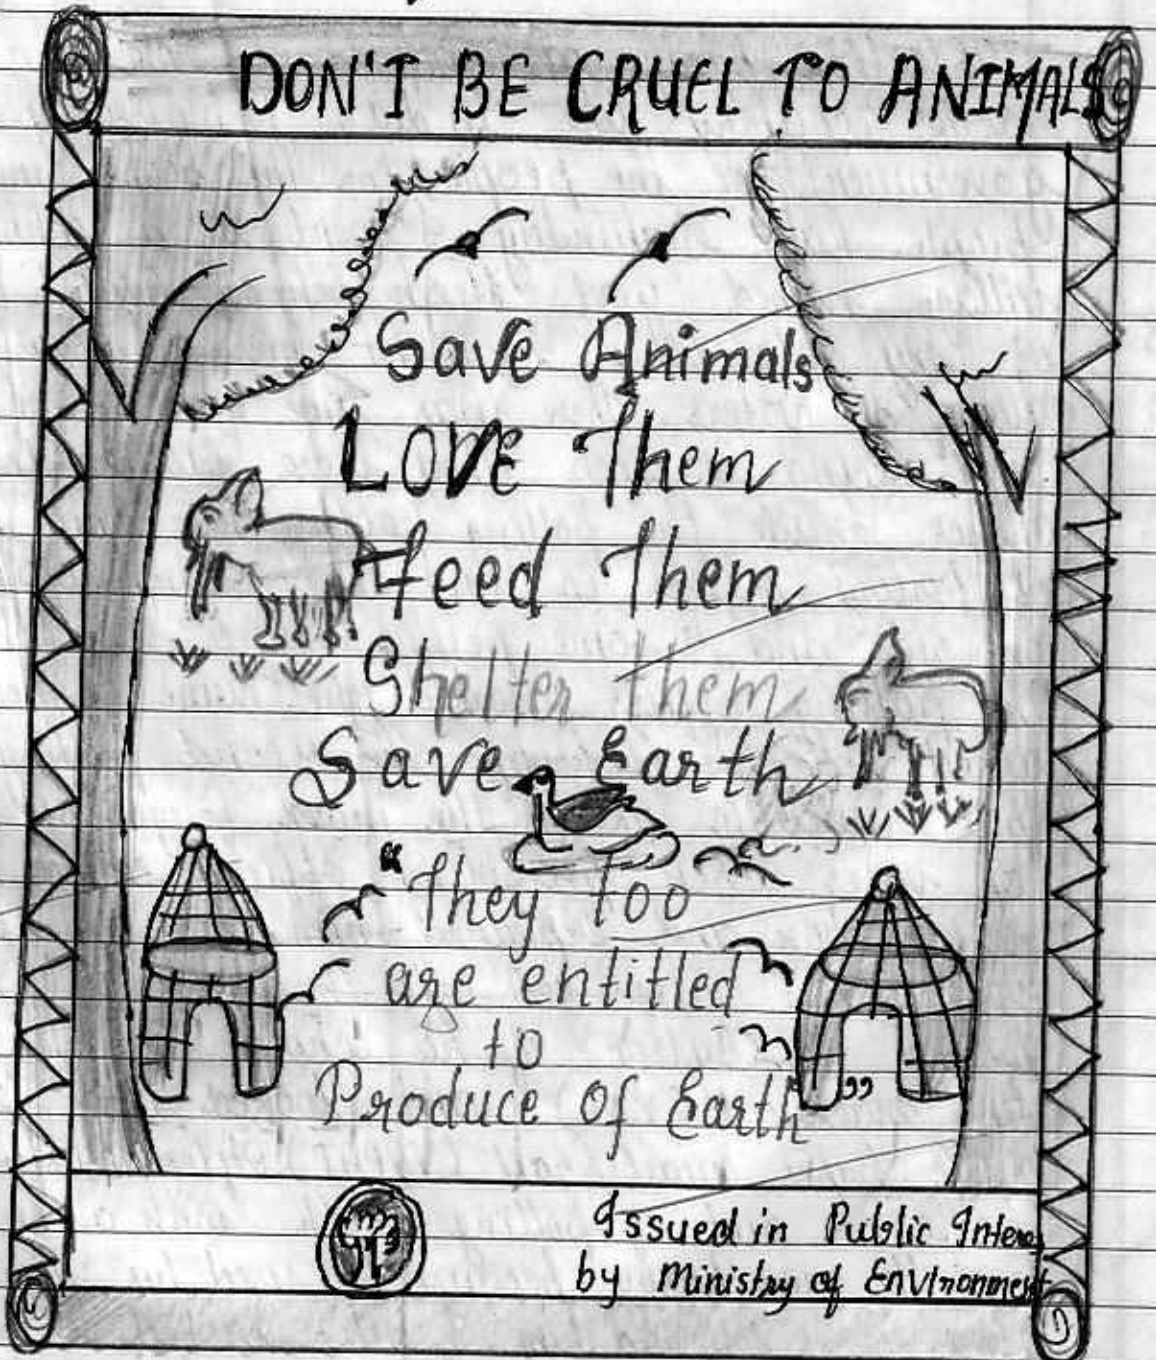 DON'T BE CRUEL TO ANIMALS
Save Animals
LOVE Them
Feed Them
Shelter them
Save Earth
"They too
are entitled
to
Produce of Earth"
Issued in Public Interes
by Ministry of Environment